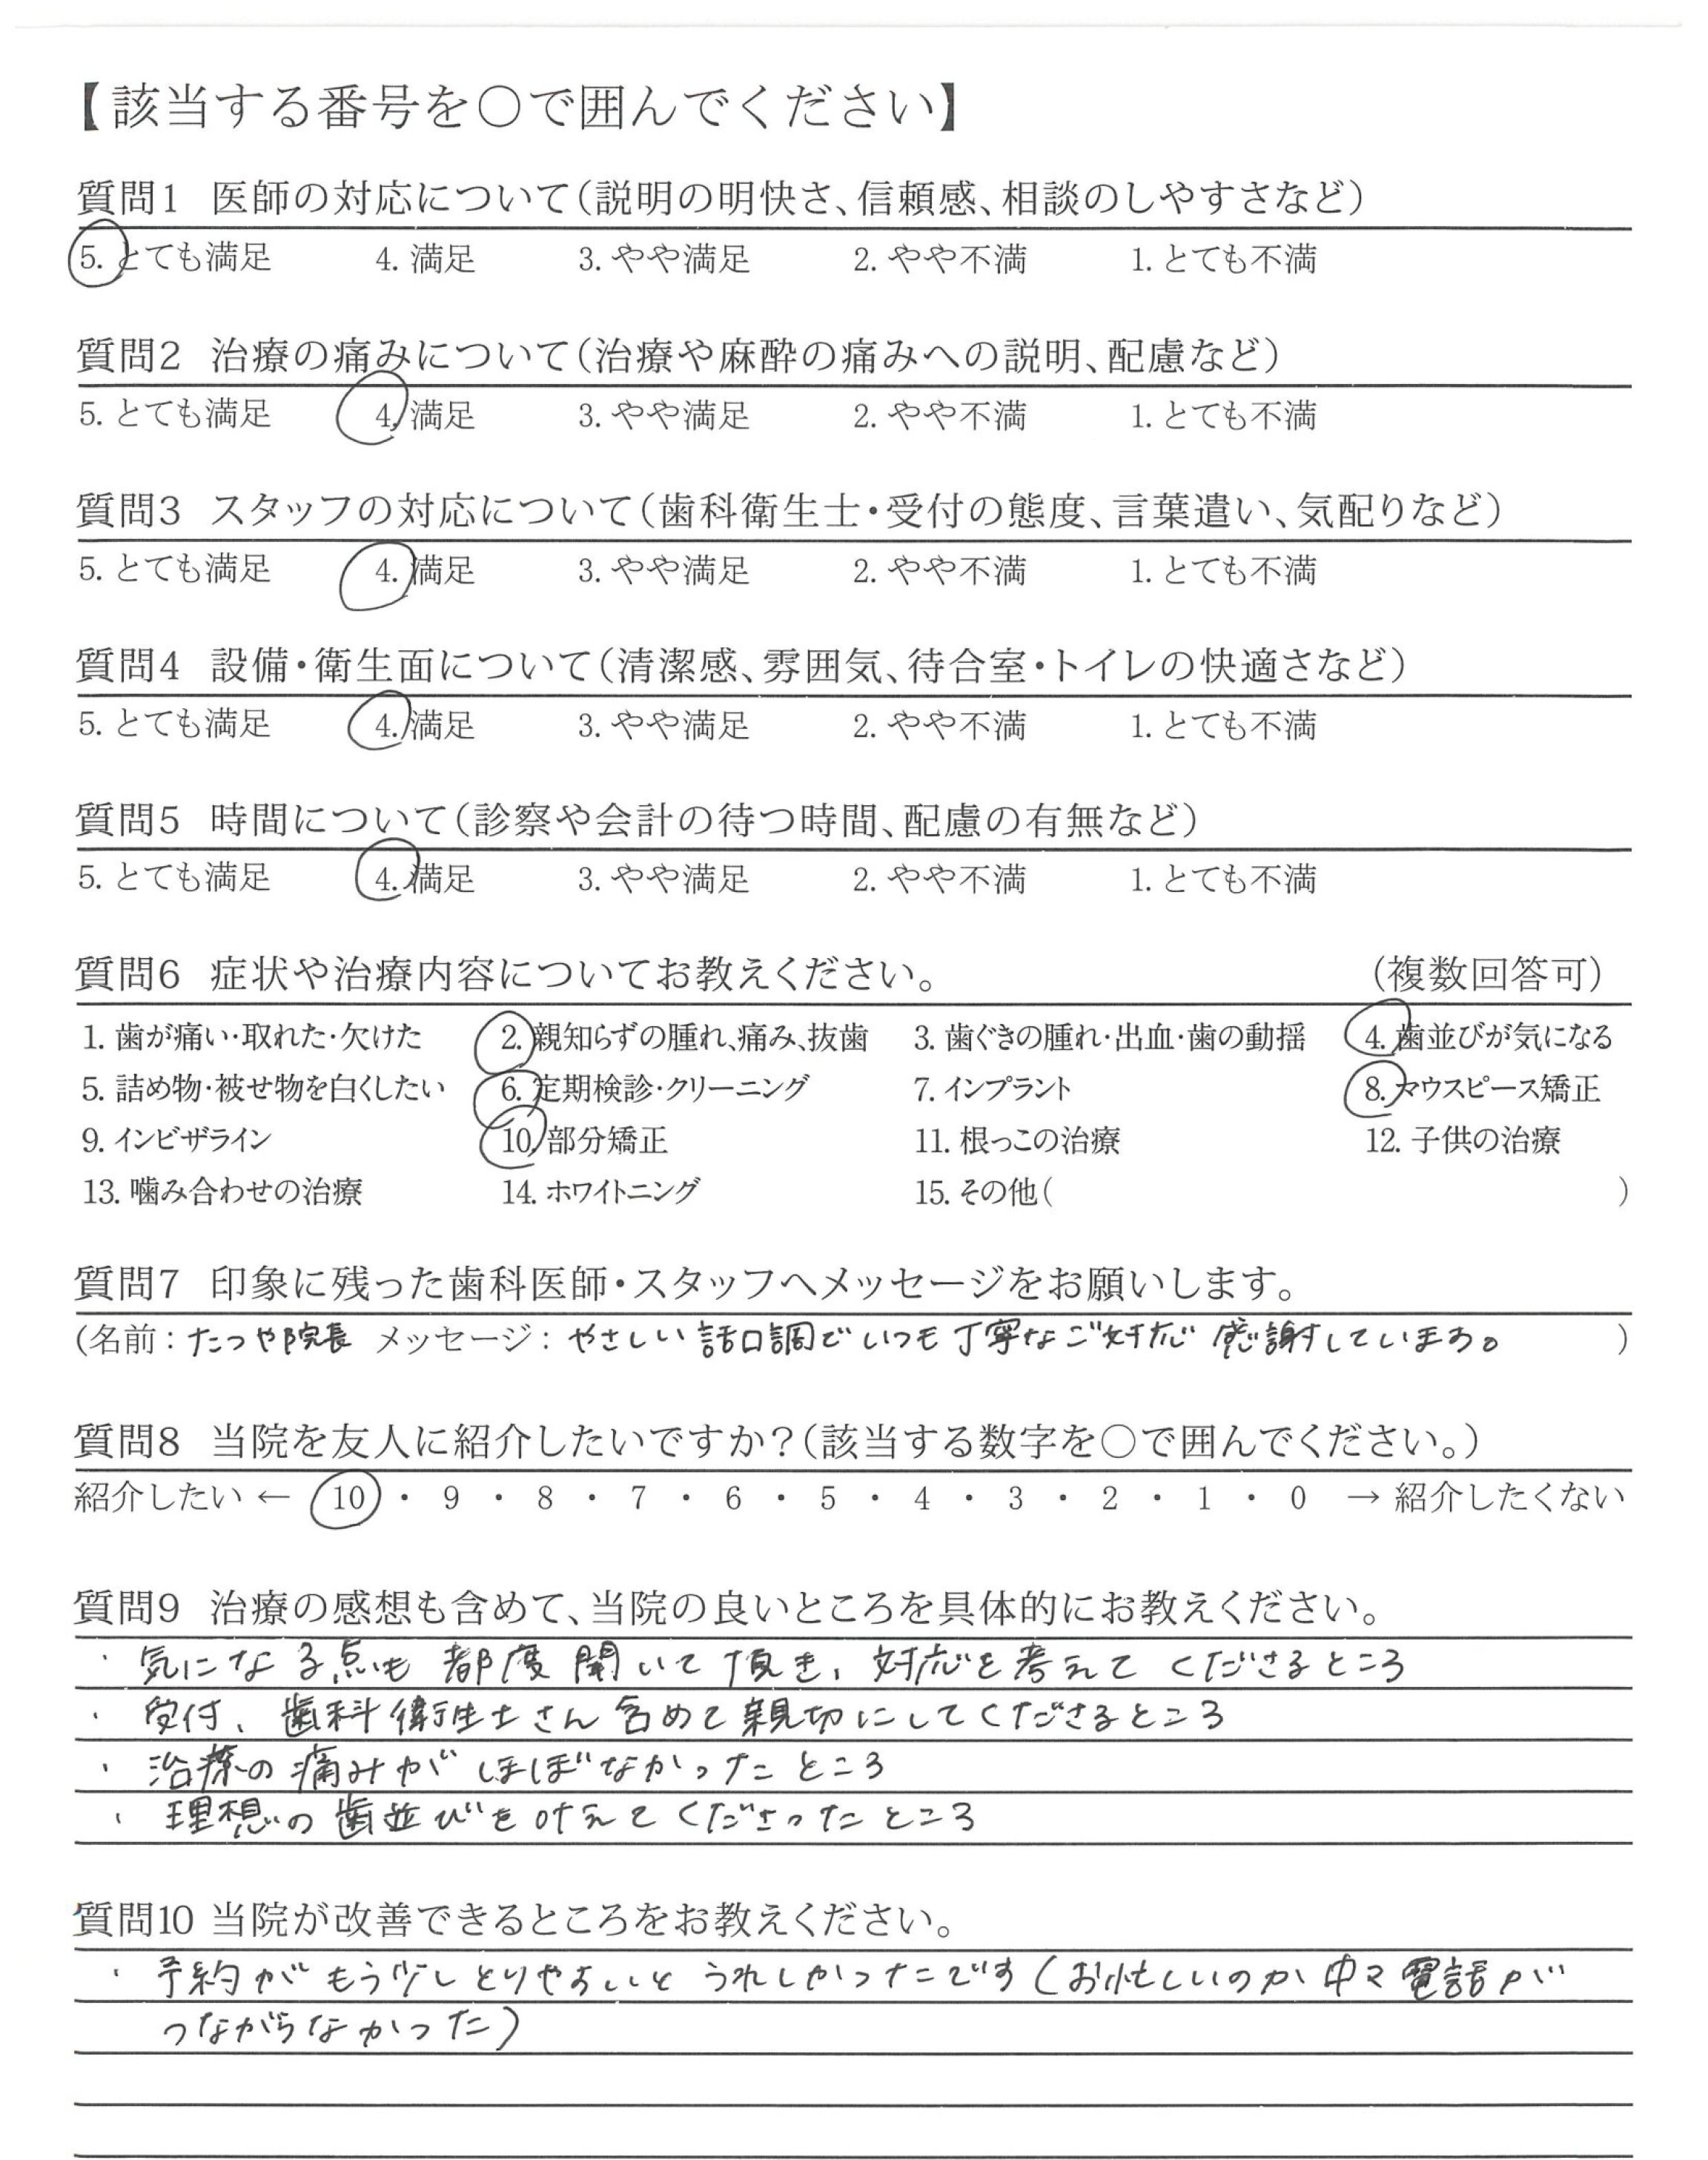 【該当する番号を○で囲んでください】
質問1 医師の対応について(説明の明快さ、信頼感、相談のしやすさなど)
5. とても満足 4. 満足 3. やや満足 2. やや不満 1. とても不満
質問2 治療の痛みについて(治療や麻酔の痛みへの説明、配慮など)
5. とても満足 4. 満足 3. やや満足 2. やや不満 1. とても不満
質問3 スタッフの対応について(歯科衛生士・受付の態度、言葉遣い、気配りなど)
5. とても満足 4. 満足 3. やや満足 2. やや不満 1. とても不満
質問4 設備・衛生面について(清潔感、雰囲気、待合室・トイレの快適さなど)
5. とても満足 4. 満足 3. やや満足 2. やや不満 1. とても不満
質問5 時間について(診察や会計の待つ時間、配慮の有無など)
5. とても満足 4. 満足 3. やや満足 2. やや不満 1. とても不満
質問6 症状や治療内容についてお教えください。 (複数回答可)
1. 歯が痛い・取れた・欠けた 2. 親知らずの腫れ、痛み、抜歯 3. 歯ぐきの腫れ・出血・歯の動揺 4. 歯並びが気になる
5. 詰め物・被せ物を白くしたい 6. 定期検診・クリーニング 7. インプラント 8. マウスピース矯正
9. インビザライン 10. 部分矯正 11. 根っこの治療 12. 子供の治療
13. 噛み合わせの治療 14. ホワイトニング 15. その他( )
質問7 印象に残った歯科医師・スタッフへメッセージをお願いします。
(名前:たつや院長 メッセージ:やさしい話口調でいつも丁寧なご対応 感謝しています。 )
質問8 当院を友人に紹介したいですか?(該当する数字を○で囲んでください。)
紹介したい ← 10 ・ 9 ・ 8 ・ 7 ・ 6 ・ 5 ・ 4 ・ 3 ・ 2 ・ 1 ・ 0 → 紹介したくない
質問9 治療の感想も含めて、当院の良いところを具体的にお教えください。
・気になる点も都度聞いて頂き、対応を考えてくださるところ
・受付、歯科衛生士さん含めて親切にしてくださるところ
・治療の痛みがほぼなかったところ
・理想の歯並びを叶えてくださったところ
質問10 当院が改善できるところをお教えください。
・予約がもう少しとりやすいとうれしかったです(お忙しいのか中々電話が
つながらなかった)